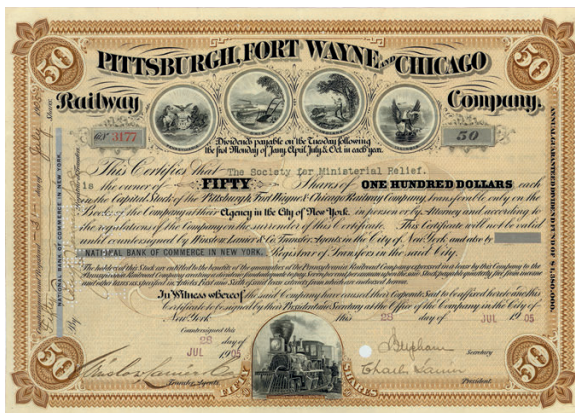 50
50
PITTSBURGH, FORT WAYNE AND CHICAGO
Railway
Company.
3177
50
Dividends payable on the Tuesday following
the first Monday of Jany. April, July & Oct. in each year.
This Certifies that The Society for Ministerial Relief.
is the owner of FIFTY Shares of ONE HUNDRED DOLLARS each
in the Capital Stock of the Pittsburgh, Fort Wayne & Chicago Railway Company, transferable only on the
Books of the Company at their Agency in the City of New York. in person or by Attorney and according to
the regulations of the Company on the surrender of this Certificate. This Certificate will not be valid
until countersigned by Winslow, Lanier & Co. Transfer Agents in the City of New York and also by
NATIONAL BANK OF COMMERCE IN NEW YORK, Registrar of Transfers in the said City.
The holders of this Stock are entitled to the benefit of the guarantee of the Pennsylvania Railroad Company
In Witness whereof the said Company have caused their Corporate Seal to be affixed hereto and this
Certificate to be signed by their President and Secretary at the Office of the Company in the City of
New York this 28 day of JUL 1905
Countersigned this
28 day of
JUL 1905
Winslow Lanier & Co
Transfer Agents
Secretary
Charles Lanier
President
FIFTY SHARES
50
50
NATIONAL BANK OF COMMERCE IN NEW YORK,